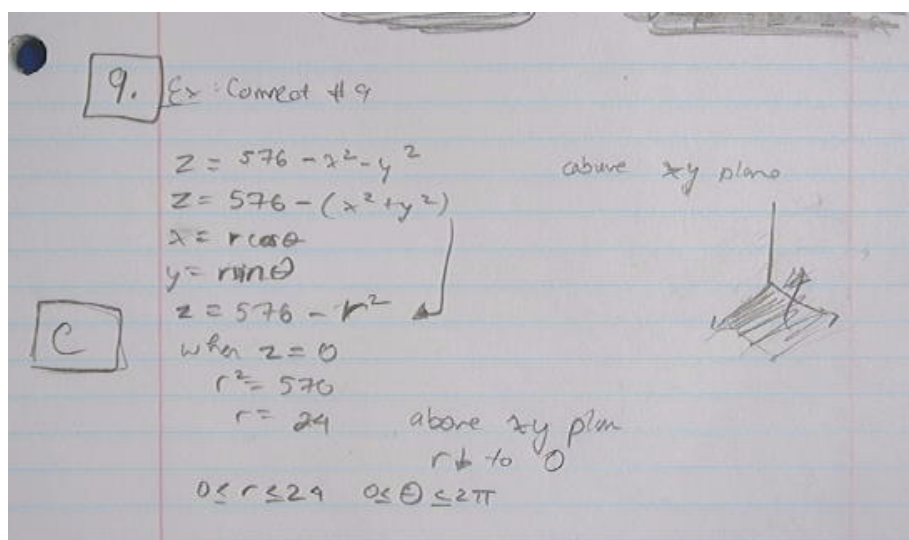 9. Ex: Connect #9
z = 576 - x² - y²
above xy plane
z = 576 - (x² + y²)
x = r cos θ
y = r sin θ
z = 576 - r²
C
when z = 0
r² = 576
r = 24
above xy plan
r ↓ to 0
0 ≤ r ≤ 24 0 ≤ θ ≤ 2π